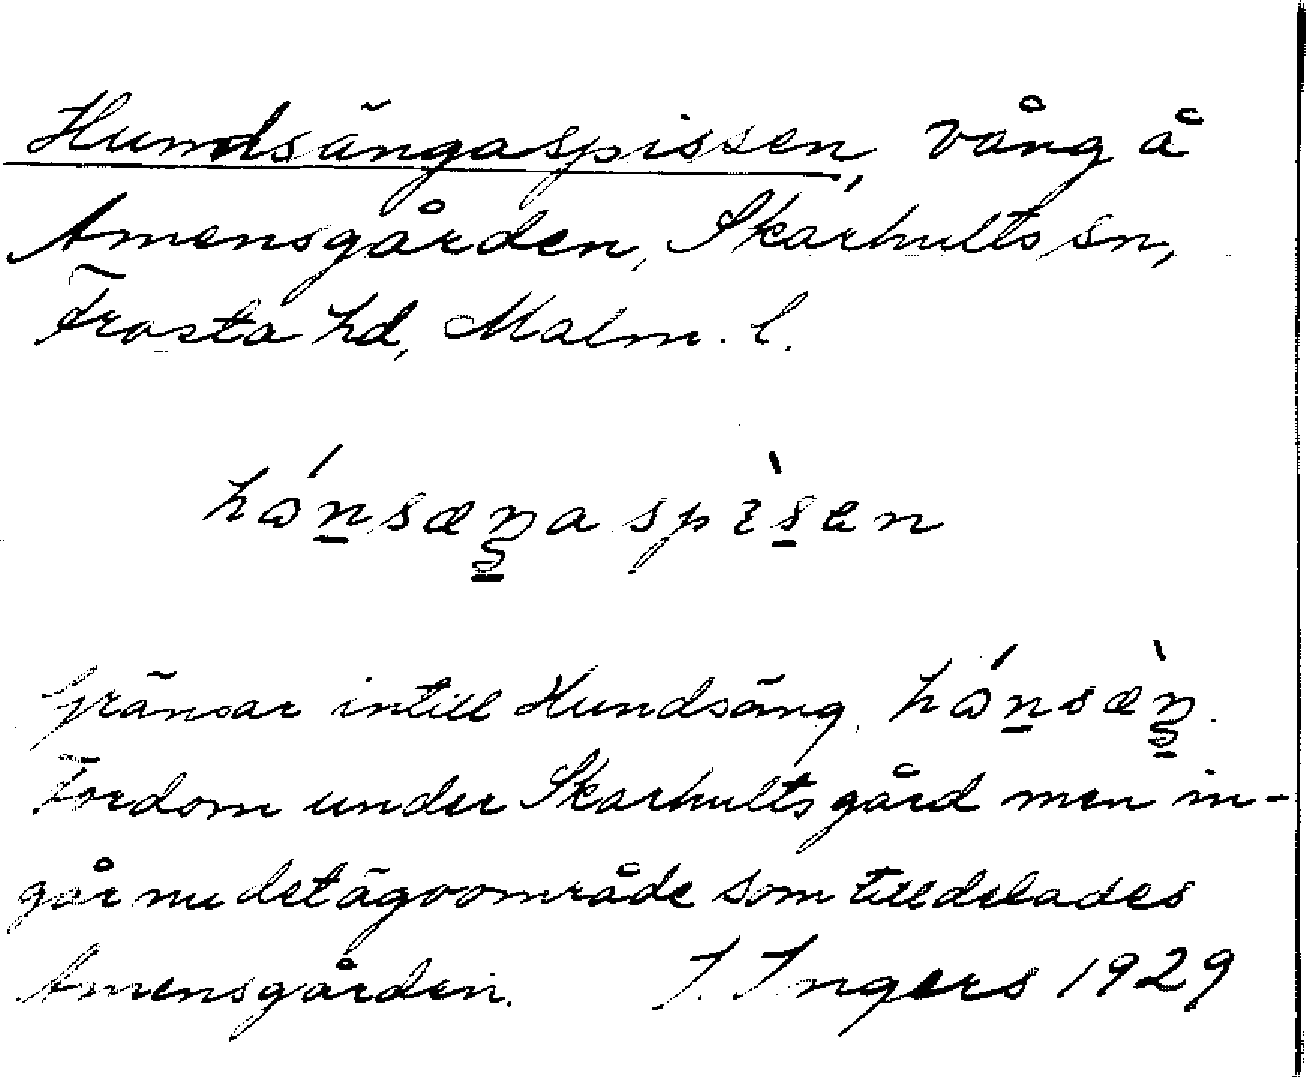 Hundsängaspissen, vång å
Amensgården, Skarhults sn,
Frosta hd, Malm. l.
hónsæŋaspìsen
gränsar intill Hundsäng, hónsæ̀ŋ.
Fordom under Skarhultsgård men in-
går nu det ägoområde som tilldelades
Amensgården. I. Ingers 1929